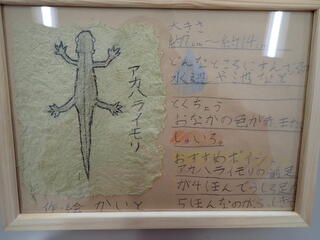 アカハライモリ
作・絵 かいと
大きさ
約7cm〜約14cm
どんなところにすんでる
水辺や池など
とくちょう
おなかの色が
おすすめポイント
アカハライモリの前足
が4ほんでうしろ足
5ほんなのが